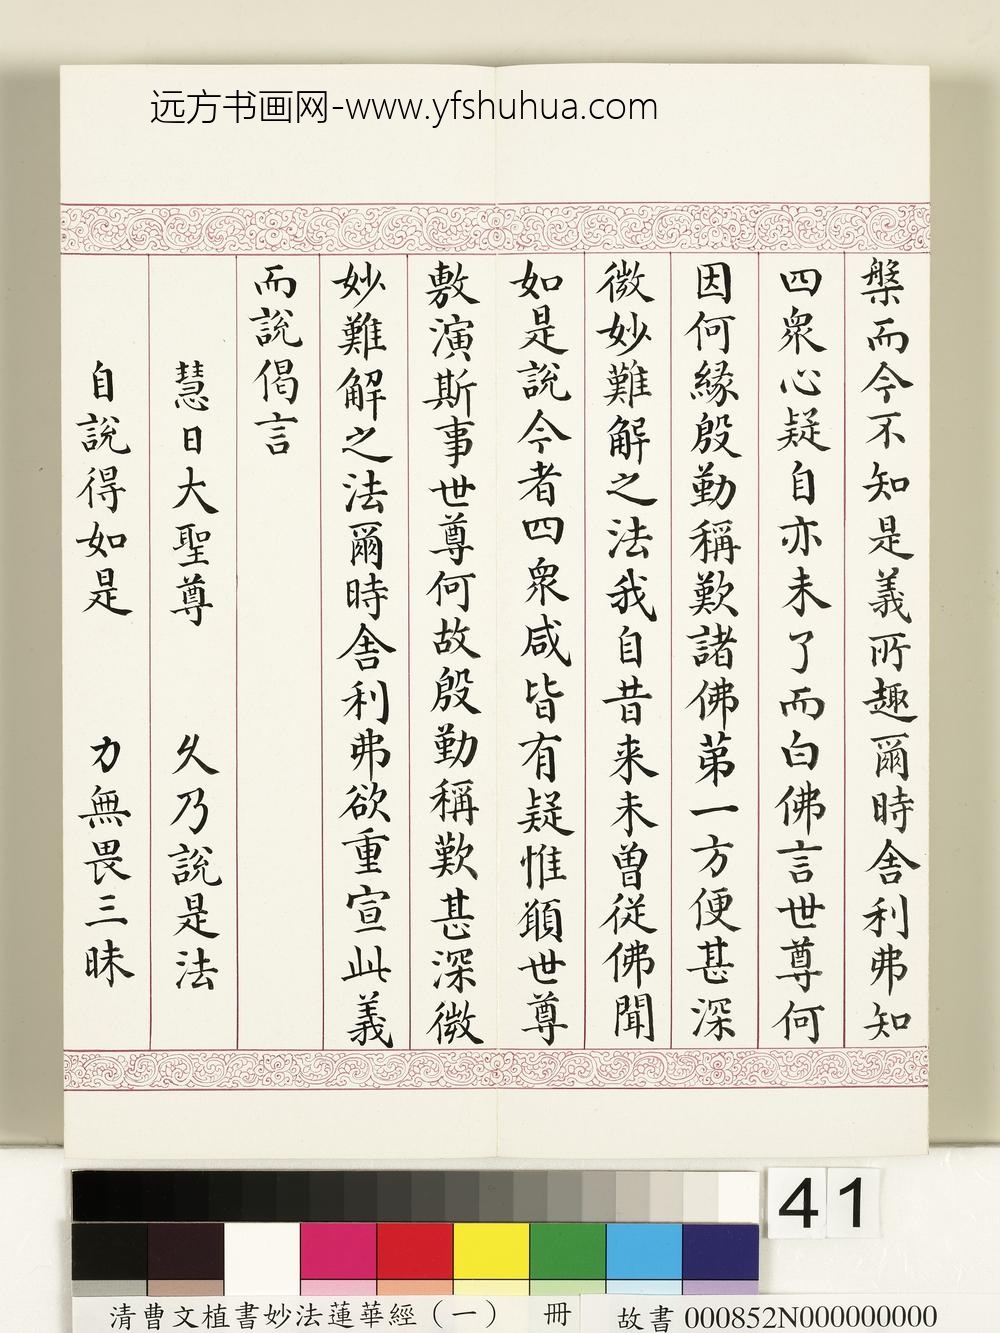 远方书画网-www.yfshuhua.com
槃而今不知是義所趣爾時舍利弗知
四衆心疑自亦未了而白佛言世尊何
因何緣殷勤稱歎諸佛第一方便甚深
微妙難解之法我自昔来未曾從佛聞
如是說今者四衆咸皆有疑惟願世尊
敷演斯事世尊何故殷勤稱歎甚深微
妙難解之法爾時舍利弗欲重宣此義
而說偈言
慧日大聖尊　久乃說是法
自說得如是　力無畏三昧
41
清曹文植書妙法蓮華經（一）　冊　故書000852N000000000